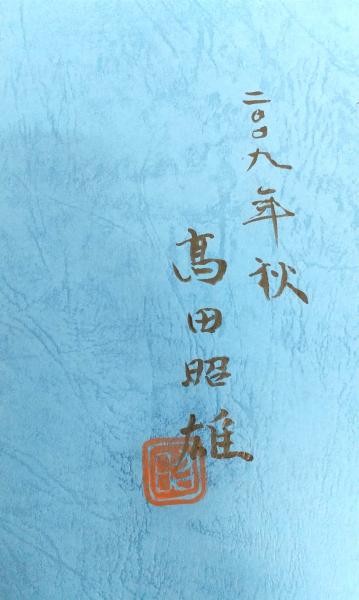 二〇〇九年秋
髙田昭雄